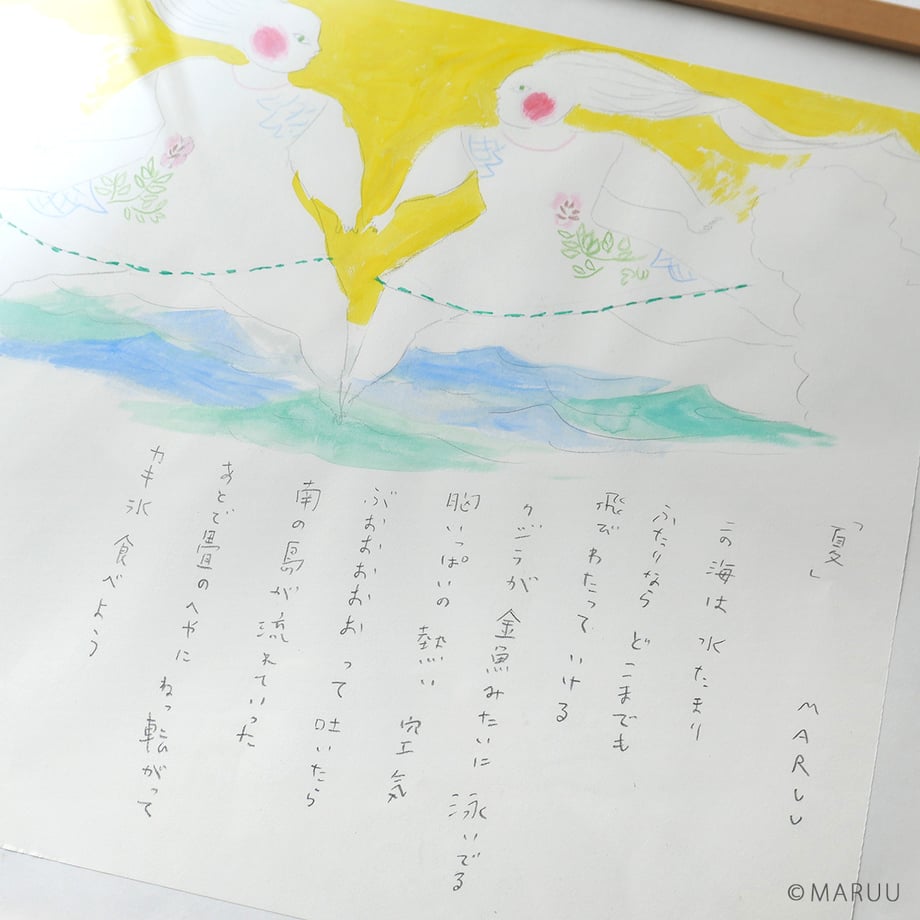 「夏」 MARUU
この海は 水たまり
ふたりなら どこまでも
飛びわたって いける
クジラが 金魚みたいに 泳いでる
胸いっぱいの 熱い 空気
ぶおおおおお って 吐いたら
南の島が 流れていった
あとで畳のへやに ねっ転がって
カキ氷 食べよう
©MARUU